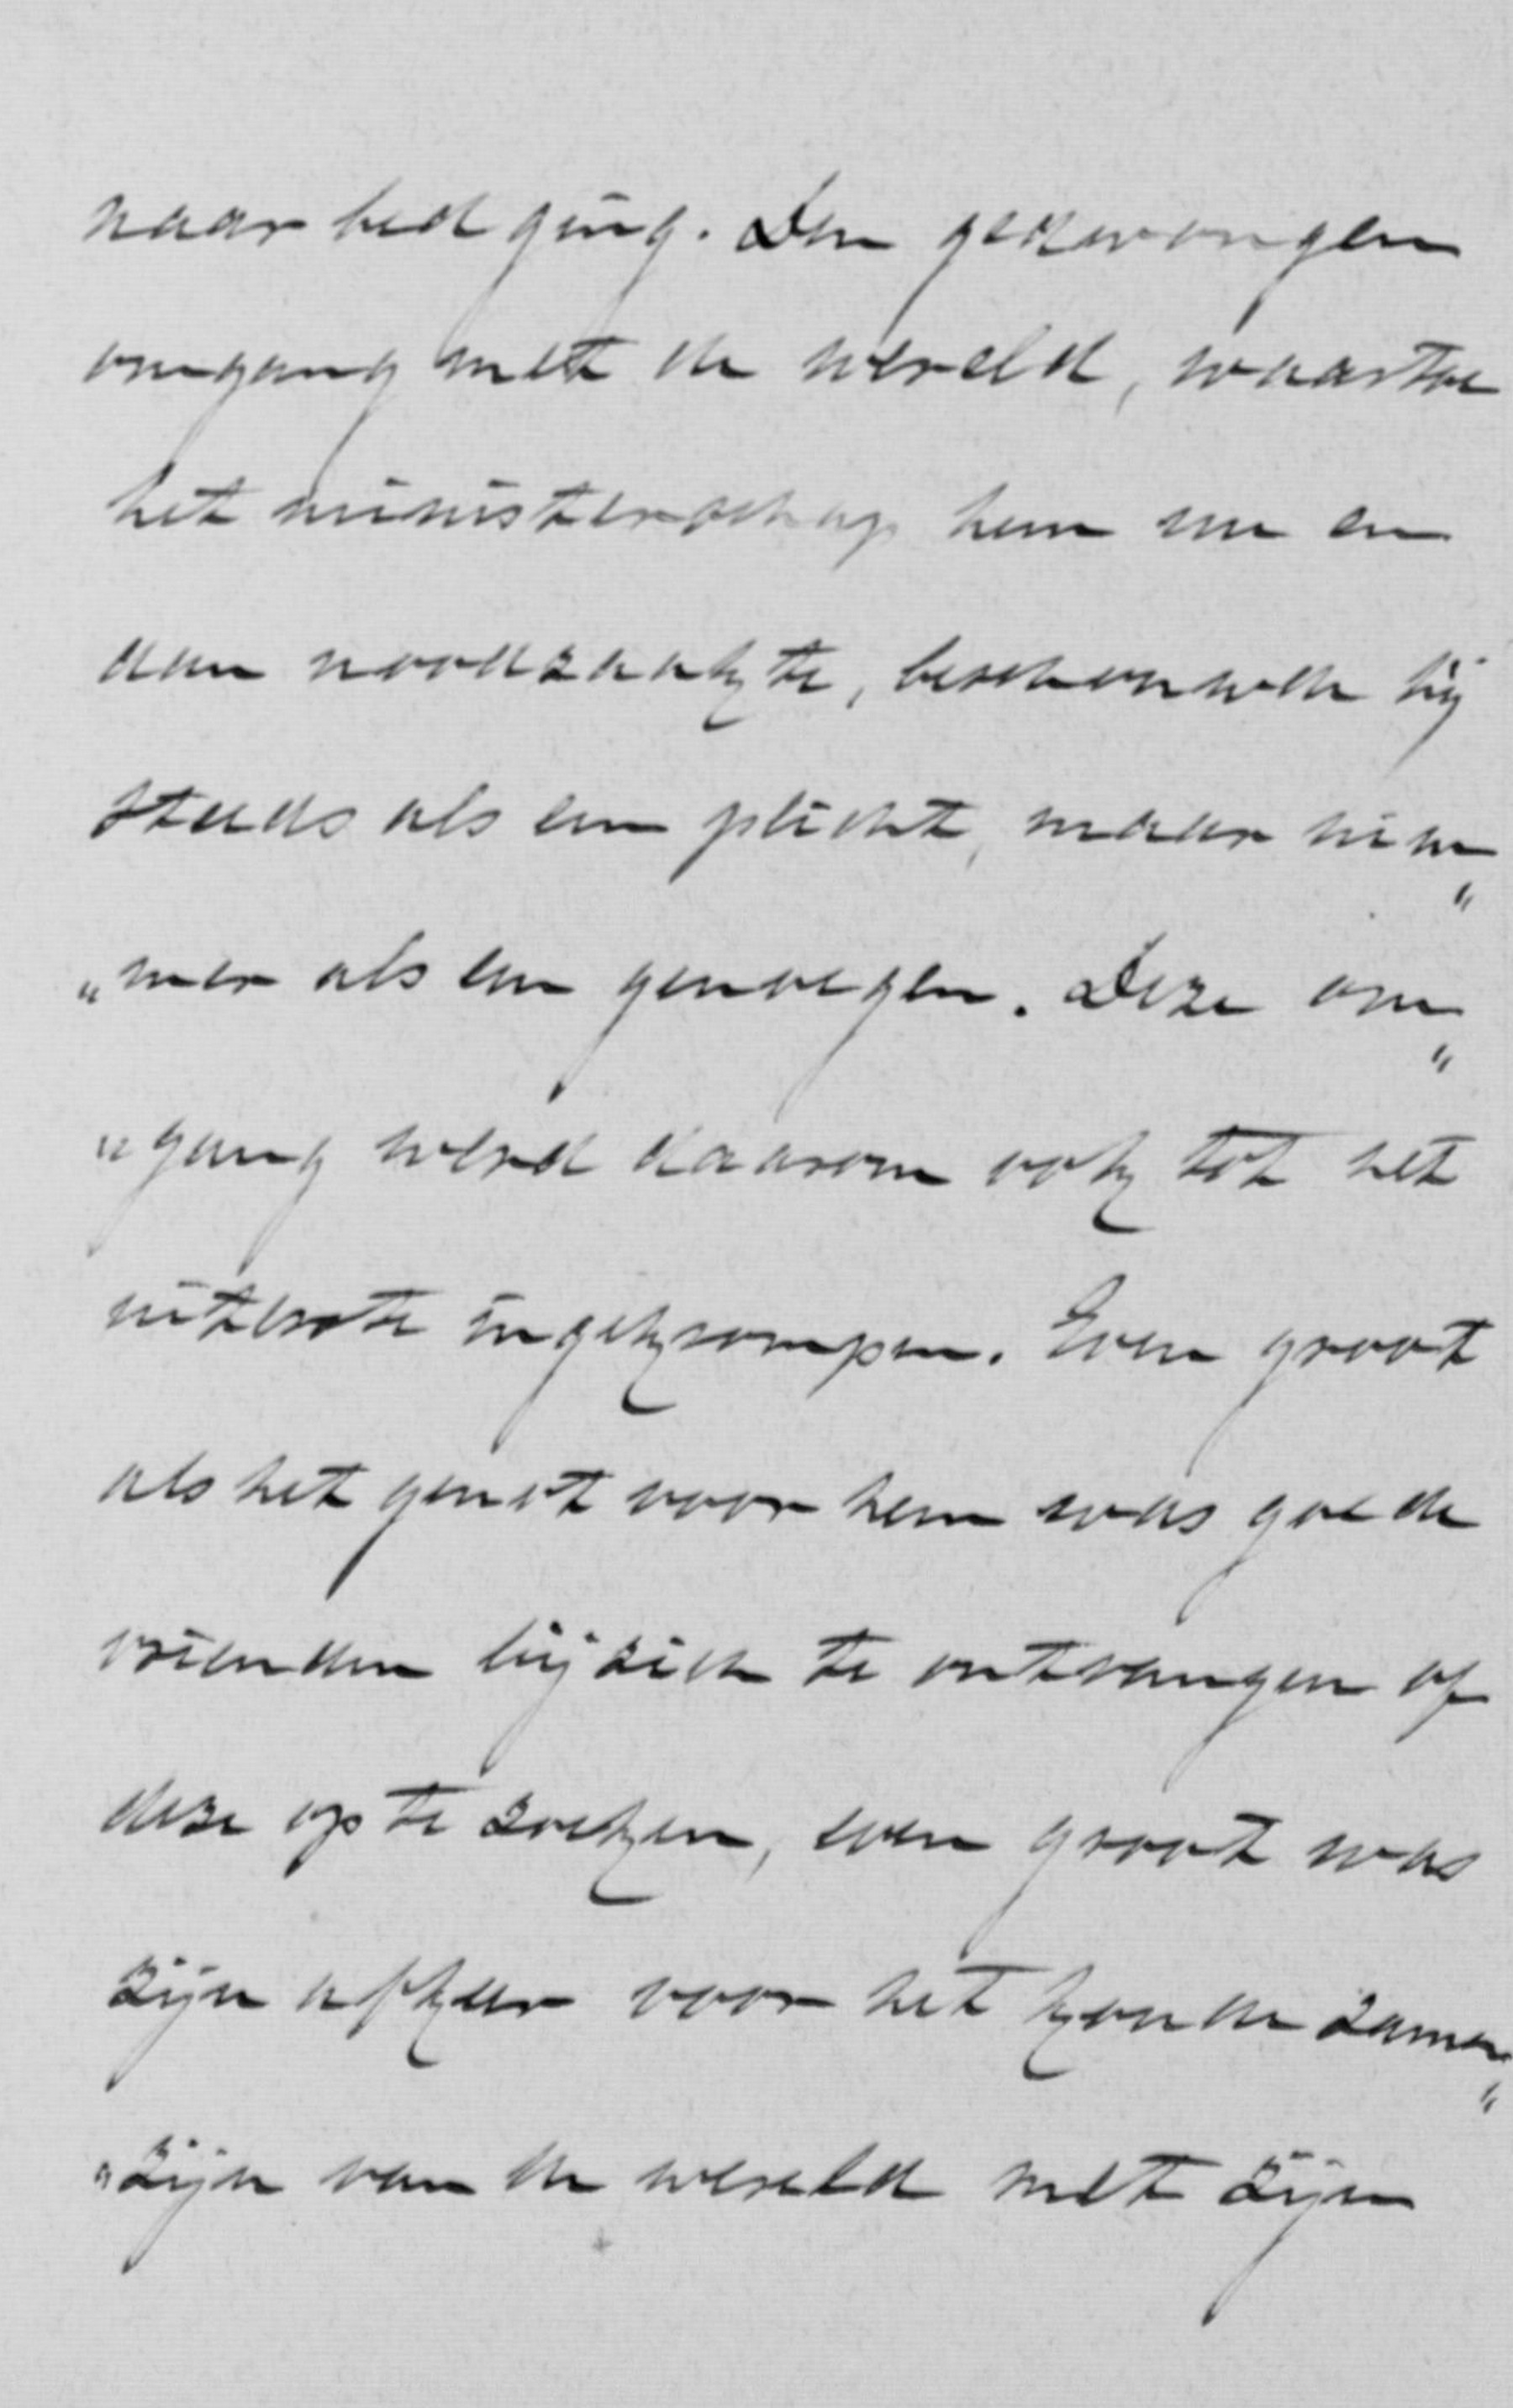 naar bed ging. Den gedwongen
omgang met de wereld, waartoe
het ministerschap hem nu en
dan noodzaakte, beschouwde hij
steeds als een plicht, maar nim„
„mer als een genoegen. Deze om„
„gang werd daarom ook tot het
uiterste ingekrompen. Even groot
als het genot voor hem was goede
vrienden bij zich te ontvangen of
deze op te zoeken, even groot was
zijn afkeer voor het koude zamen„
„zijn van de wereld met zijn